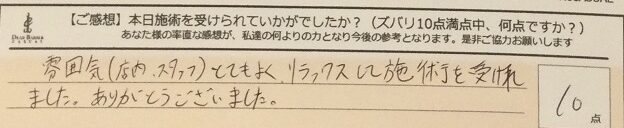 【ご感想】本日施術を受けられていかがでしたか？（ズバリ10点満点中、何点ですか？）
あなた様の率直な感想が、私達の何よりの力となり今後の参考となります。是非ご協力お願いします
DEAR BARBER
雰囲気(店内、スタッフ)とてもよく、リラックスして施術を受けれ
ました。ありがとうございました。
10
点